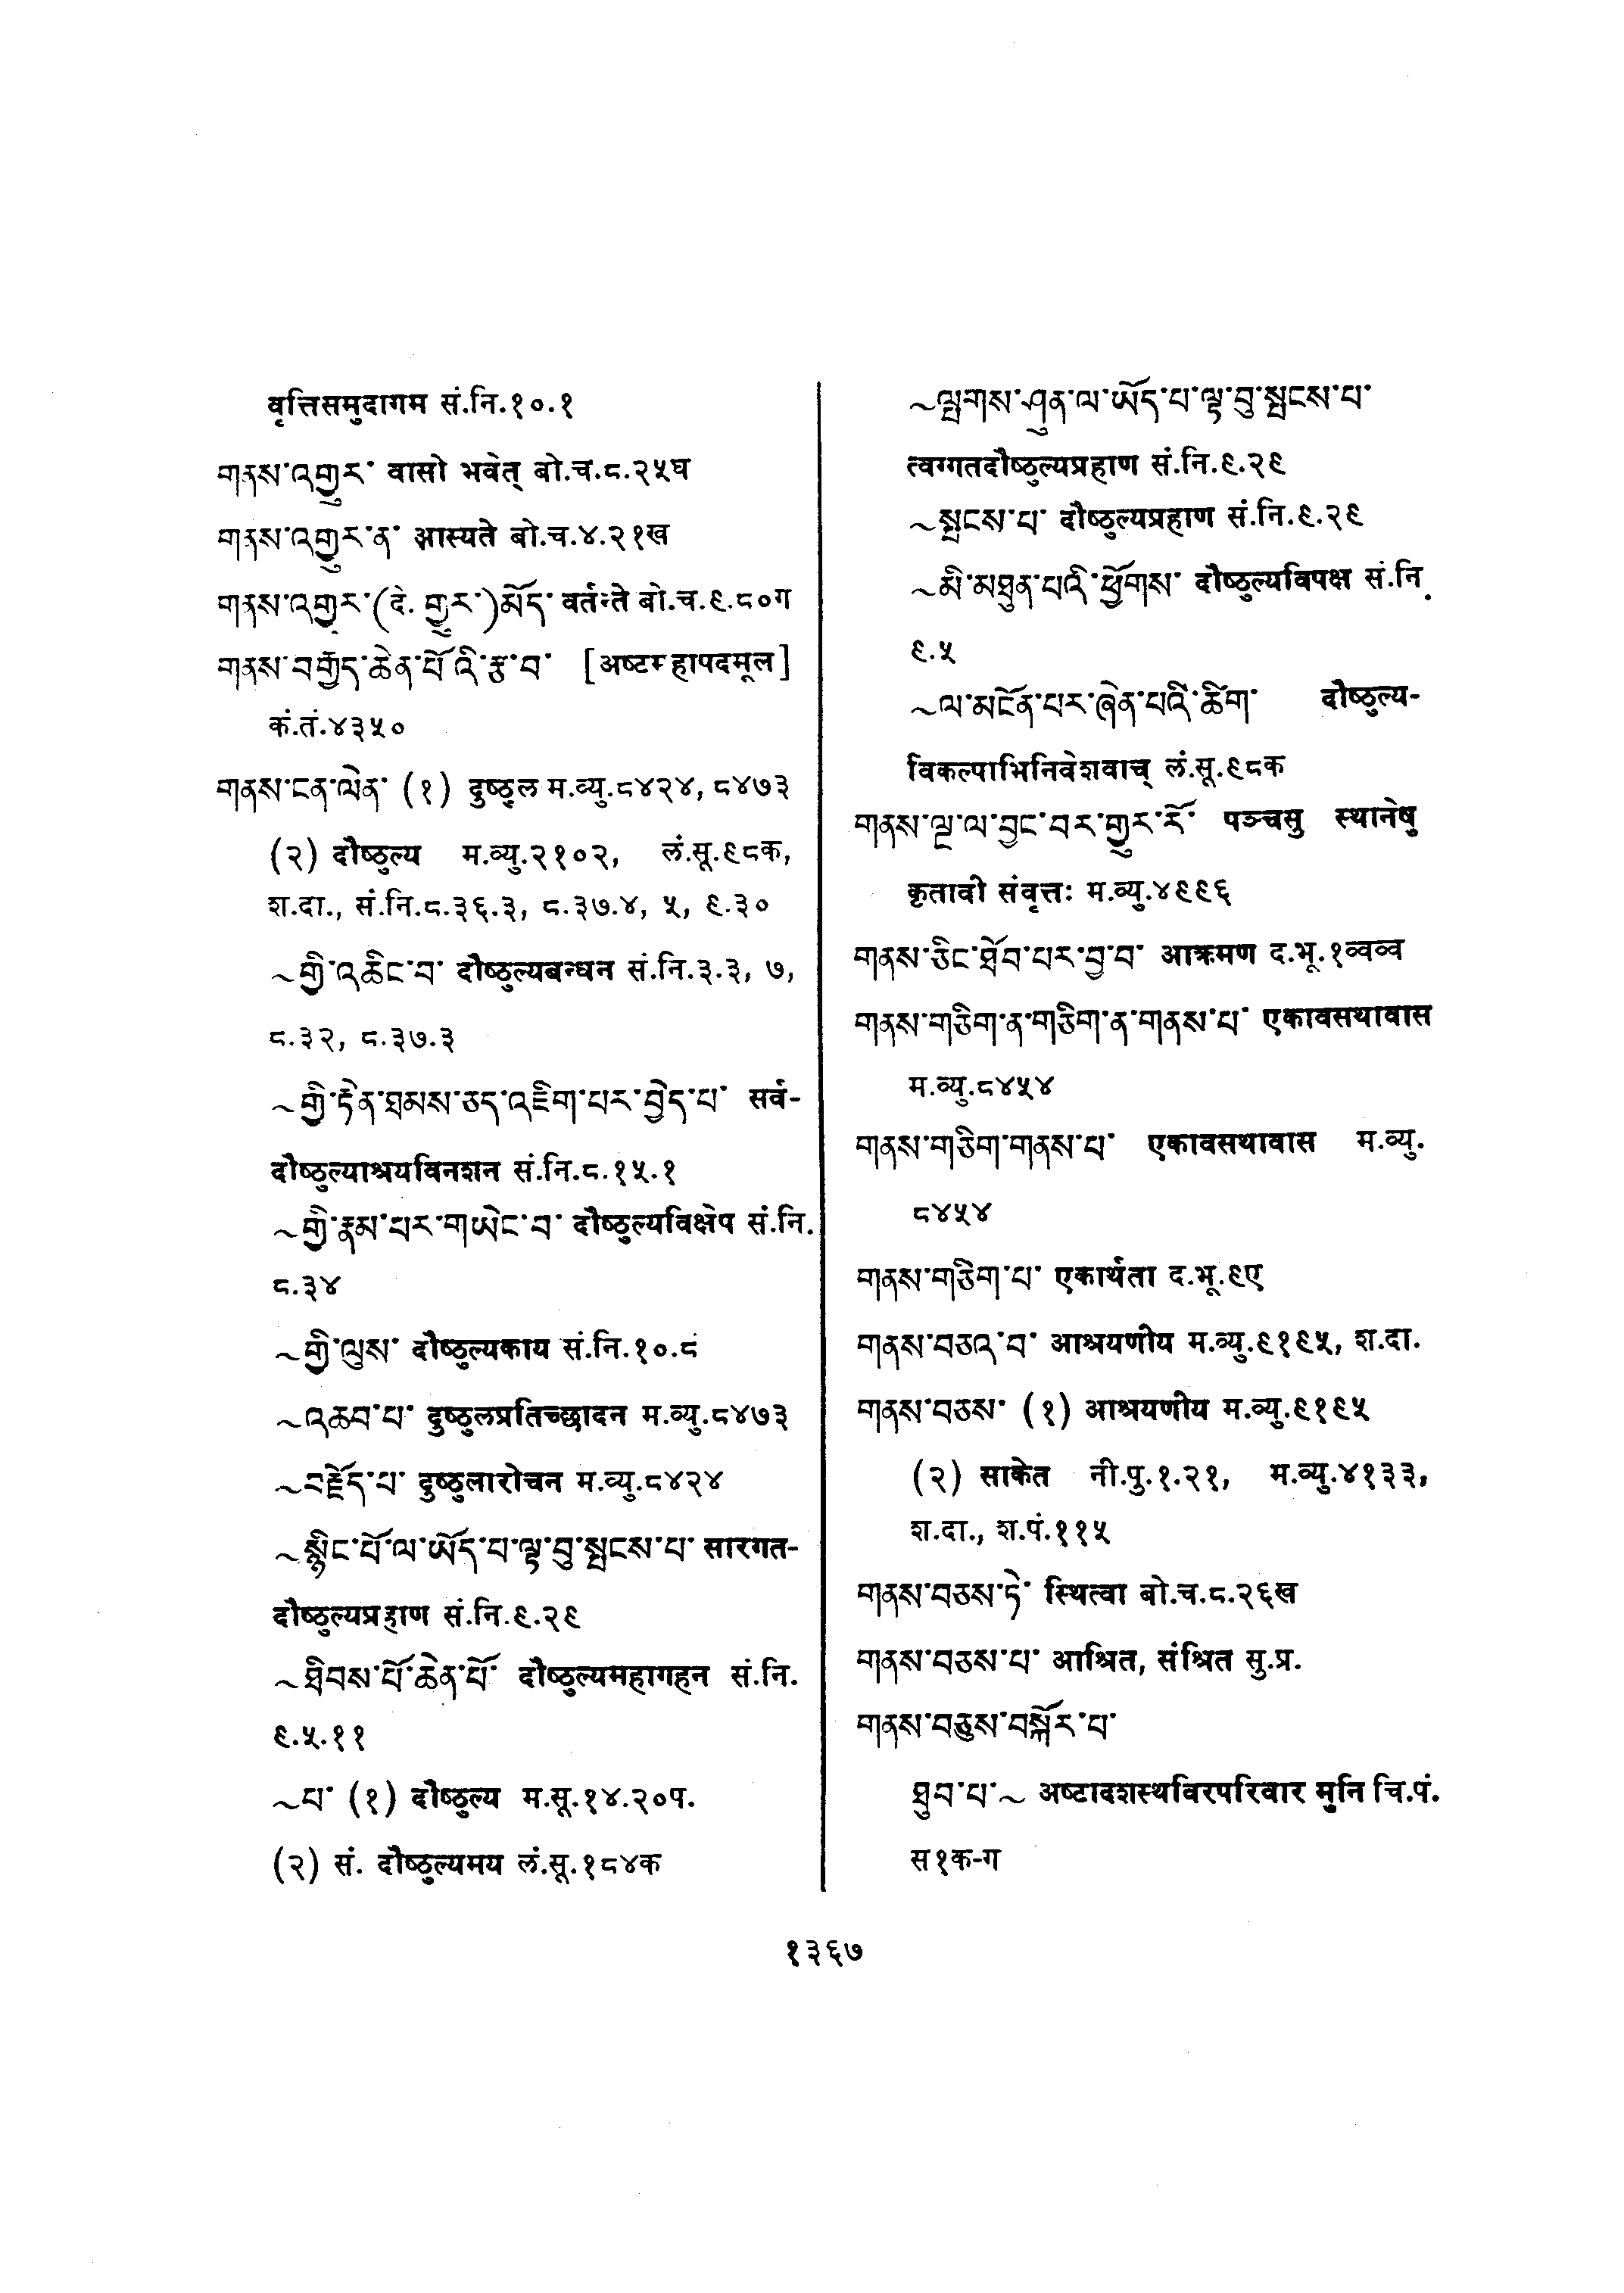 वृत्तिसमुदागम सं.नि.१०.१
གནས་འགྱུར་ वासो भवेत् बो.च.८.२५घ
གནས་འགྱུར་ན་ आस्यते बो.च.४.२१ख
གནས་འགྱུར་(དེ. གྱུར་)མོད་ वर्तन्ते बो.च.९.८०ग
གནས་བརྒྱད་ཆེན་པོའི་རྩ་བ་ [अष्टमहापदमूल]
कं.तं.४३५०
གནས་ངན་ལེན་ (१) दुष्ठुल म.व्यु.८४२४, ८४७३
(२) दौष्ठुल्य म.व्यु.२१०२, लं.सू.९८क,
श.दा., सं.नि.८.३६.३, ८.३७.४, ५, ९.३०
~གྱི་འཆིང་བ་ दौष्ठुल्यबन्धन सं.नि.३.३, ७,
८.३२, ८.३७.३
~གྱི་རྟེན་ཐམས་ཅད་འཇིག་པར་བྱེད་པ་ सर्व-
दौष्ठुल्याश्रयविनशन सं.नि.८.१५.१
~གྱི་རྣམ་པར་གཡེང་བ་ दौष्ठुल्यविक्षेप सं.नि.
८.३४
~གྱི་ལུས་ दौष्ठुल्यकाय सं.नि.१०.८
~འཆབ་པ་ दुष्ठुलप्रतिच्छादन म.व्यु.८४७३
~བརྗོད་པ་ दुष्ठुलारोचन म.व्यु.८४२४
~སྙིང་པོ་ལ་ཡོད་པ་ལྟ་བུ་སྤངས་པ་ सारगत-
दौष्ठुल्यप्रहाण सं.नि.९.२९
~ཐིབས་པོ་ཆེན་པོ་ दौष्ठुल्यमहागहन सं.नि.
९.५.११
~པ་ (१) दौष्ठुल्य म.सू.१४.२०प.
(२) सं. दौष्ठुल्यमय लं.सू.१८४क
~ལྤགས་ཤུན་ལ་ཡོད་པ་ལྟ་བུ་སྤངས་པ་
त्वग्गतदौष्ठुल्यप्रहाण सं.नि.९.२९
~སྤངས་པ་ दौष्ठुल्यप्रहाण सं.नि.९.२९
~མི་མཐུན་པའི་ཕྱོགས་ दौष्ठुल्यविपक्ष सं.नि.
९.५
~ལ་མངོན་པར་ཞེན་པའི་ཚིག་ दौष्ठुल्य-
विकल्पाभिनिवेशवाच् लं.सू.९८क
གནས་ལྔ་ལ་བྱང་བར་གྱུར་རོ་ पञ्चसु स्थानेषु
कृतावी संवृत्तः म.व्यु.४९९६
གནས་ཅིང་ཐོབ་པར་བྱ་བ་ आक्रमण द.भू.१व्वव्व
གནས་གཅིག་ན་གཅིག་ན་གནས་པ་ एकावसथावास
म.व्यु.८४५४
གནས་གཅིག་གནས་པ་ एकावसथावास म.व्यु.
८४५४
གནས་གཅིག་པ་ एकार्थता द.भू.९ए
གནས་བཅའ་བ་ आश्रयणीय म.व्यु.९१९५, श.दा.
གནས་བཅས་ (१) आश्रयणीय म.व्यु.९१९५
(२) साकेत नी.पु.१.२१, म.व्यु.४१३३,
श.दा., श.पं.११५
གནས་བཅས་ཏེ་ स्थित्वा बो.च.८.२६ख
གནས་བཅས་པ་ आश्रित, संश्रित सु.प्र.
གནས་བཅུས་བསྐོར་པ་
ཐུབ་པ་~ अष्टादशस्थविरपरिवार मुनि चि.पं.
स१क-ग
१३६७